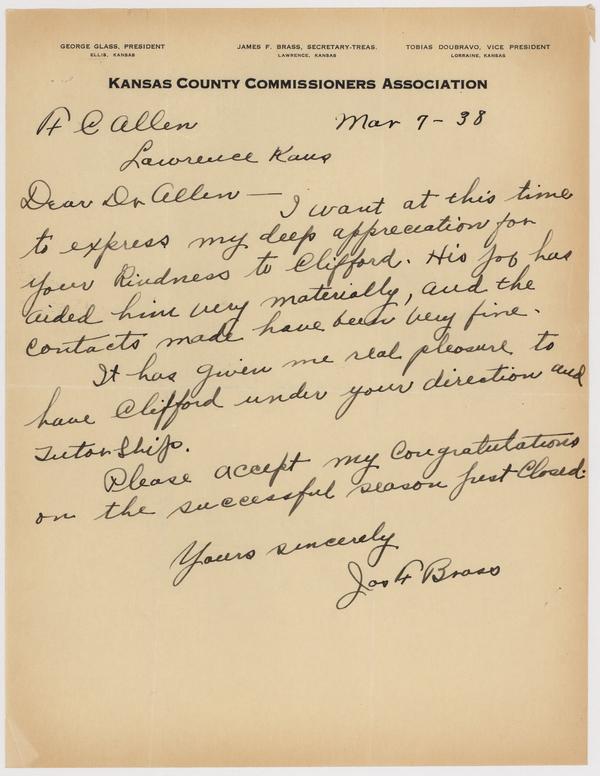 GEORGE GLASS, PRESIDENT
ELLIS, KANSAS
JAMES F. BRASS, SECRETARY-TREAS.
LAWRENCE, KANSAS
TOBIAS DOUBRAVO, VICE PRESIDENT
LORRAINE, KANSAS
KANSAS COUNTY COMMISSIONERS ASSOCIATION
F C Allen Mar 7-38
Lawrence Kans
Dear Dr Allen — I want at this time
to express my deep appreciation for
your kindness to Clifford. His job has
aided him very materially, and the
contacts made have been very fine.
It has given me real pleasure to
have Clifford under your direction and
Tutor Ship.
Please accept my Congratulations
on the successful season just Closed.
Yours sincerely
Jas F Brass